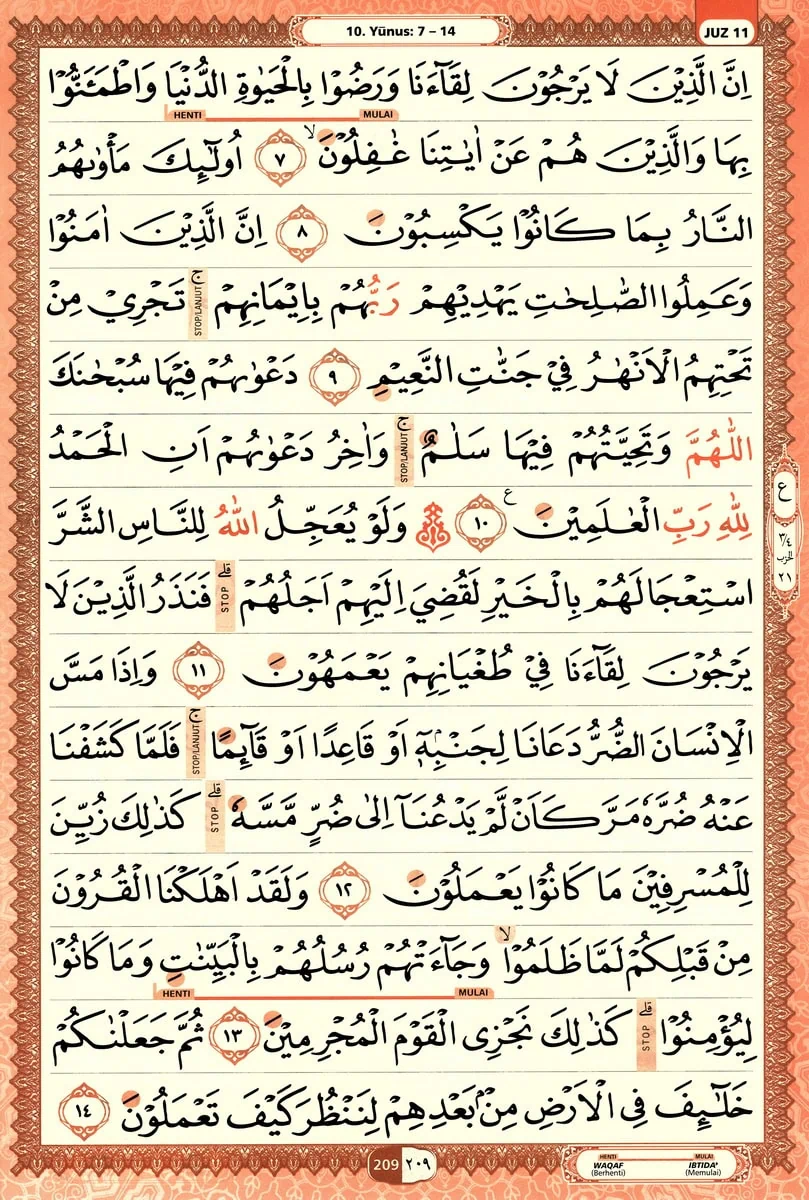 10. Yūnus: 7 – 14
JUZ 11
اِنَّ الَّذِيْنَ لَا يَرْجُوْنَ لِقَاۤءَنَا وَرَضُوْا بِالْحَيٰوةِ الدُّنْيَا وَاطْمَـَٔنُّوْا
HENTI MULAI
بِهَا وَالَّذِيْنَ هُمْ عَنْ اٰيٰتِنَا غٰفِلُوْنَۙ ٧ اُولٰۤىِٕكَ مَأْوٰىهُمُ
النَّارُ بِمَا كَانُوْا يَكْسِبُوْنَ ٨ اِنَّ الَّذِيْنَ اٰمَنُوْا
وَعَمِلُوا الصّٰلِحٰتِ يَهْدِيْهِمْ رَبُّهُمْ بِاِيْمَانِهِمْۚ STOP/LANJUT تَجْرِيْ مِنْ
تَحْتِهِمُ الْاَنْهٰرُ فِيْ جَنّٰتِ النَّعِيْمِ ٩ دَعْوٰىهُمْ فِيْهَا سُبْحٰنَكَ
اللّٰهُمَّ وَتَحِيَّتُهُمْ فِيْهَا سَلٰمٌۚ STOP/LANJUT وَاٰخِرُ دَعْوٰىهُمْ اَنِ الْحَمْدُ
لِلّٰهِ رَبِّ الْعٰلَمِيْنَ ࣖ ١٠ وَلَوْ يُعَجِّلُ اللّٰهُ لِلنَّاسِ الشَّرَّ
ع
٣/٤
الحزب
٢١
اسْتِعْجَالَهُمْ بِالْخَيْرِ لَقُضِيَ اِلَيْهِمْ اَجَلُهُمْۗ STOP فَنَذَرُ الَّذِيْنَ لَا
يَرْجُوْنَ لِقَاۤءَنَا فِيْ طُغْيَانِهِمْ يَعْمَهُوْنَ ١١ وَاِذَا مَسَّ
الْاِنْسَانَ الضُّرُّ دَعَانَا لِجَنْۢبِهٖٓ اَوْ قَاعِدًا اَوْ قَاۤىِٕمًاۚ STOP/LANJUT فَلَمَّا كَشَفْنَا
عَنْهُ ضُرَّهٗ مَرَّ كَاَنْ لَّمْ يَدْعُنَآ اِلٰى ضُرٍّ مَّسَّهٗۗ STOP كَذٰلِكَ زُيِّنَ
لِلْمُسْرِفِيْنَ مَا كَانُوْا يَعْمَلُوْنَ ١٢ وَلَقَدْ اَهْلَكْنَا الْقُرُوْنَ
مِنْ قَبْلِكُمْ لَمَّا ظَلَمُوْاۙ وَجَاۤءَتْهُمْ رُسُلُهُمْ بِالْبَيِّنٰتِ وَمَا كَانُوْا
HENTI MULAI
لِيُؤْمِنُوْاۗ STOP كَذٰلِكَ نَجْزِى الْقَوْمَ الْمُجْرِمِيْنَ ١٣ ثُمَّ جَعَلْنٰكُمْ
خَلٰۤىِٕفَ فِى الْاَرْضِ مِنْۢ بَعْدِهِمْ لِنَنْظُرَ كَيْفَ تَعْمَلُوْنَ ١٤
209 ٢٠٩
HENTI MULAI
WAQAF IBTIDA'
(Berhenti) (Memulai)